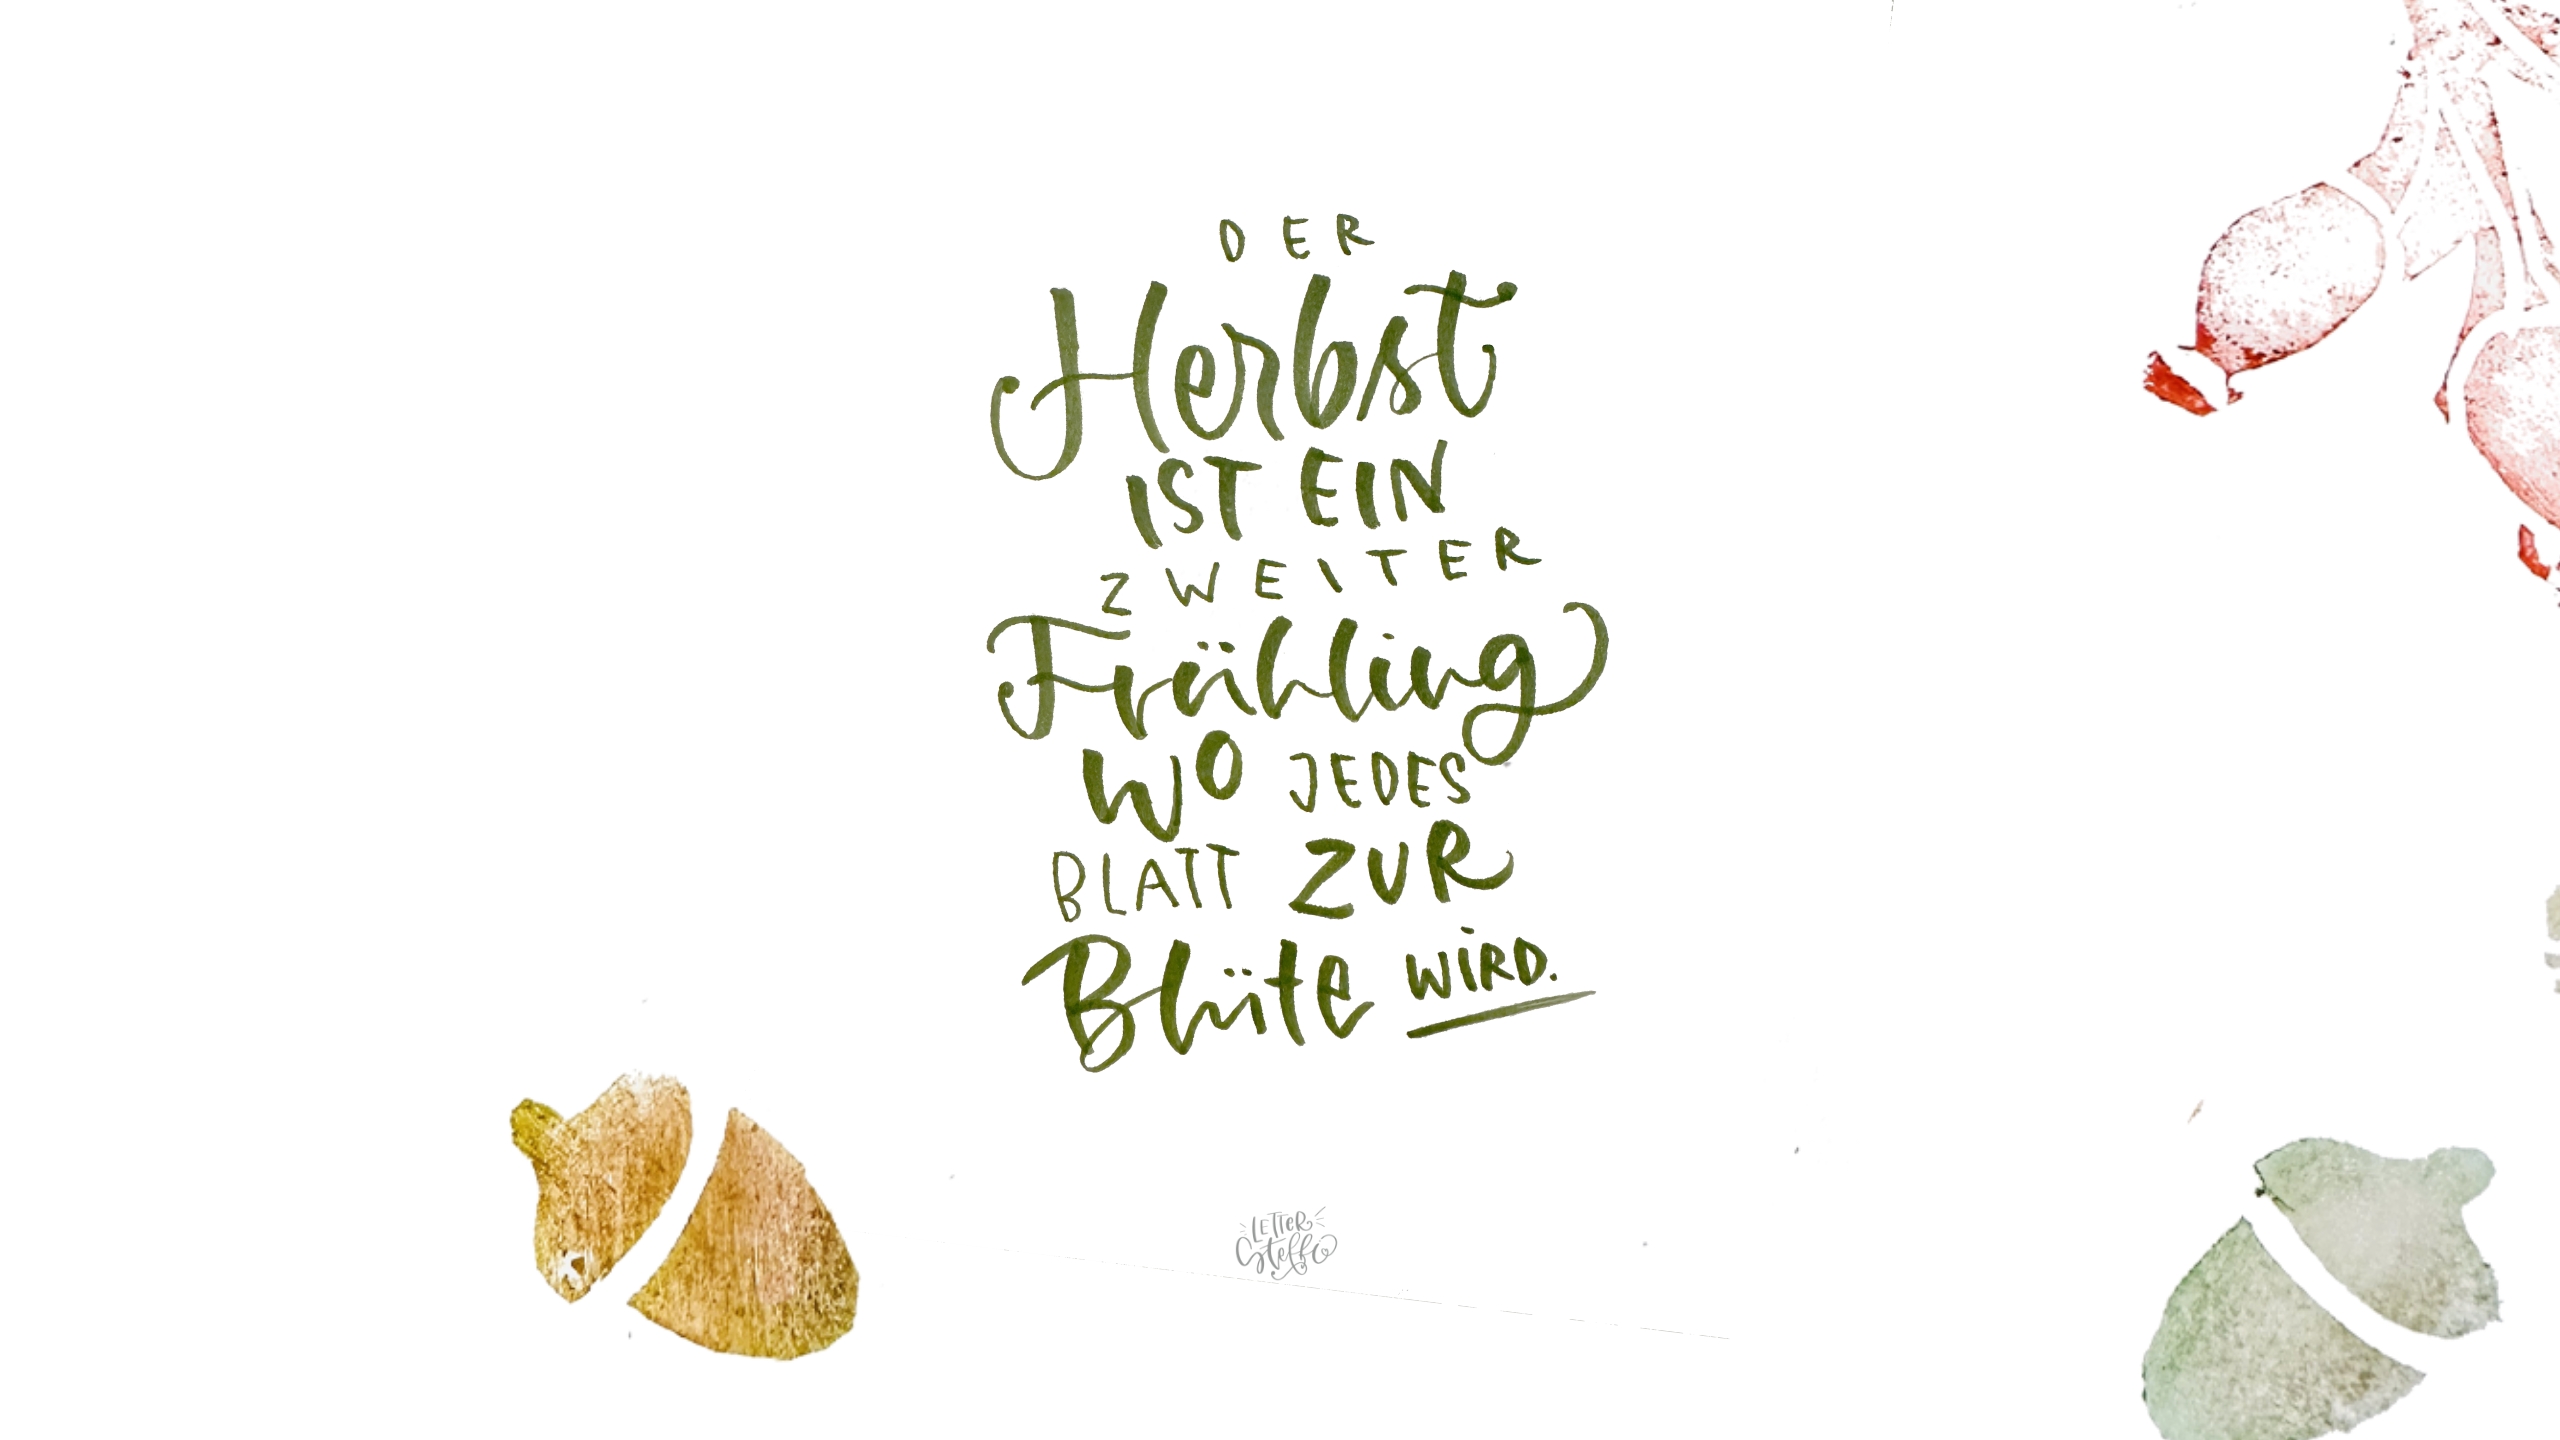 DER
Herbst
IST EIN
ZWEITER
Frühling
WO JEDES
BLATT ZUR
Blüte WIRD.
LETTER
Steffi